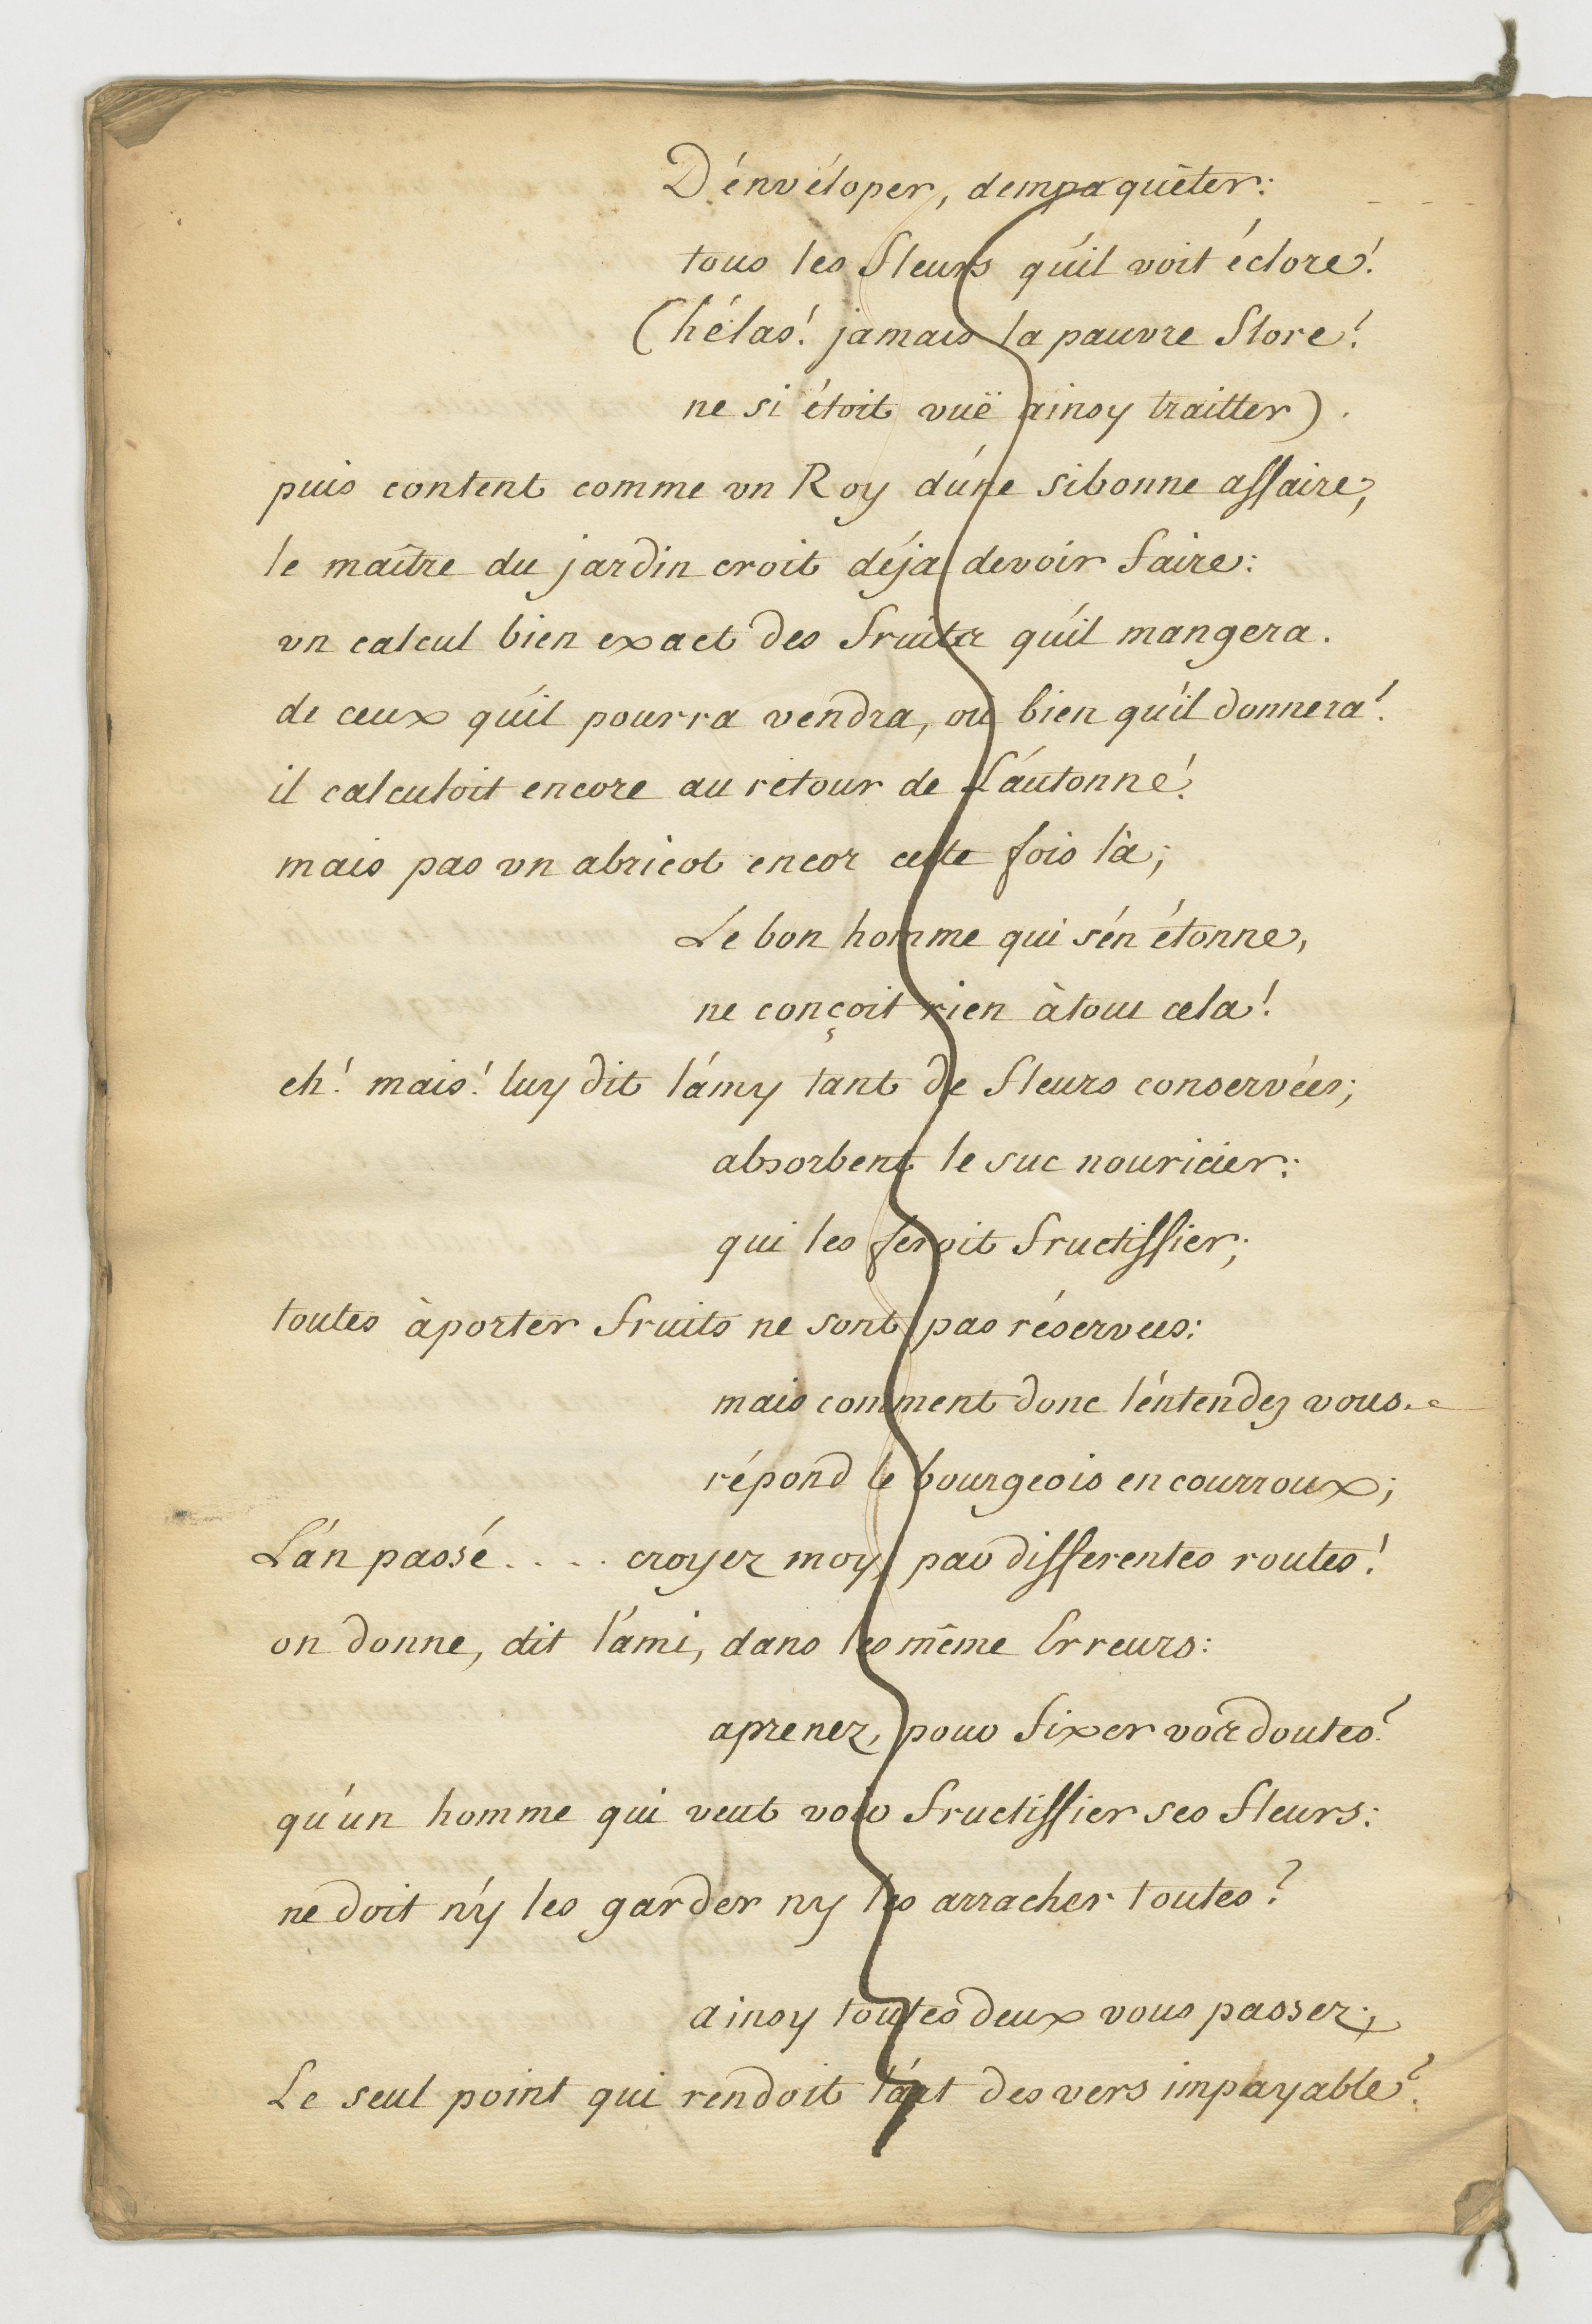 D'énvéloper, dempaquêter:
tous les fleurs qu'il voit éclore!
(hélas! jamais la pauvre flore!
ne si étoit vuë ainsy traitter).
puis content comme un Roy d'úne sibonne affaire,
le maître du jardin croit déja devoir faire:
un calcul bien exact des fruits qu'il mangera.
de ceux qu'il pourra vendra, ou bien qu'il donnera!
il calculoit encore au retour de L'áutonne!
mais pas un abricot encor cette fois là;
Le bon homme qui s'én étonne,
ne conçoit rien à tout cela!
eh! mais! luy dit l'ámy tant de fleurs conservées;
absorbent le suc nouricier:
qui les feroit fructiffier;
toutes àporter fruits ne sont pas réservees:
mais comment donc l'éntendez vous..
répond le bourgeois en courroux;
L'án passé.... croyez moy, par differentes routes!
on donne, dit l'ami, dans les même Erreurs:
aprenez, pour fixer vos doutes?
qu'un homme qui veut voir fructiffier ses fleurs:
ne doit n'y les garder ny les arracher toutes?
ainsy toutes deux vous passez;
Le seul point qui rendoit l'árt des vers impayable?